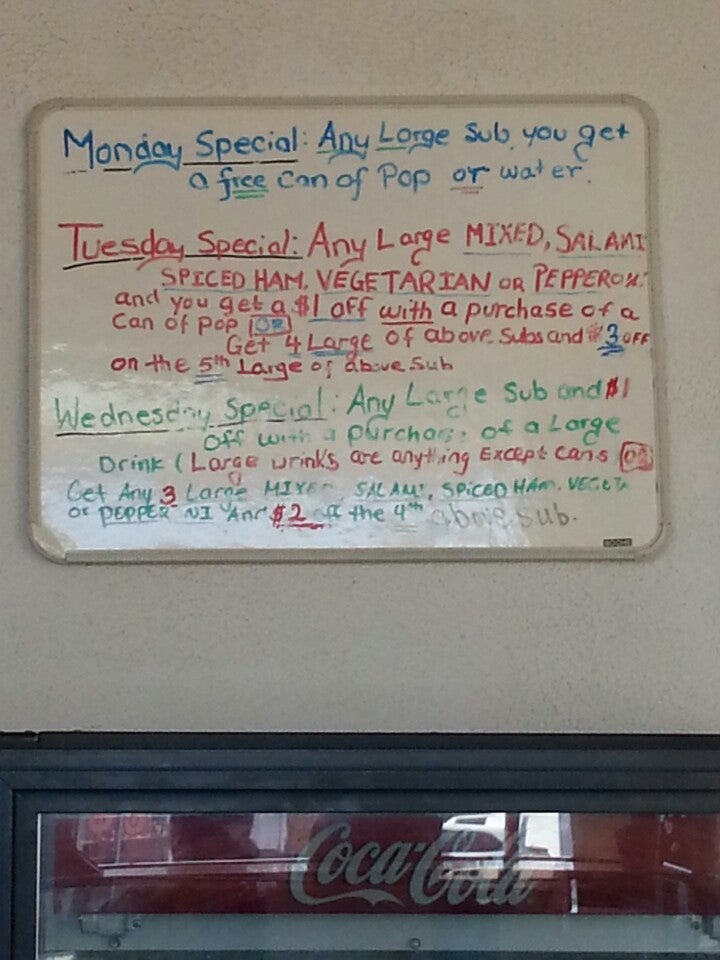 Monday Special: Any Large Sub, you get
a free can of Pop or water.
Tuesday Special: Any Large MIXED, SALAMI
SPICED HAM, VEGETARIAN OR PEPPERONI
and you get a $1 off with a purchase of a
Can of Pop OR
Get 4 Large of above Subs and $3 OFF
on the 5th Large of above Sub
Wednesday Special: Any Large Sub and $1
off with a purchase of a Large
Drink (Large Drinks are anything Except cans OR
Get Any 3 Large MIXED, SALAMI, SPICED HAM, VEGETA
or PEPPERONI And $2 off the 4th above sub.
Coca-Cola